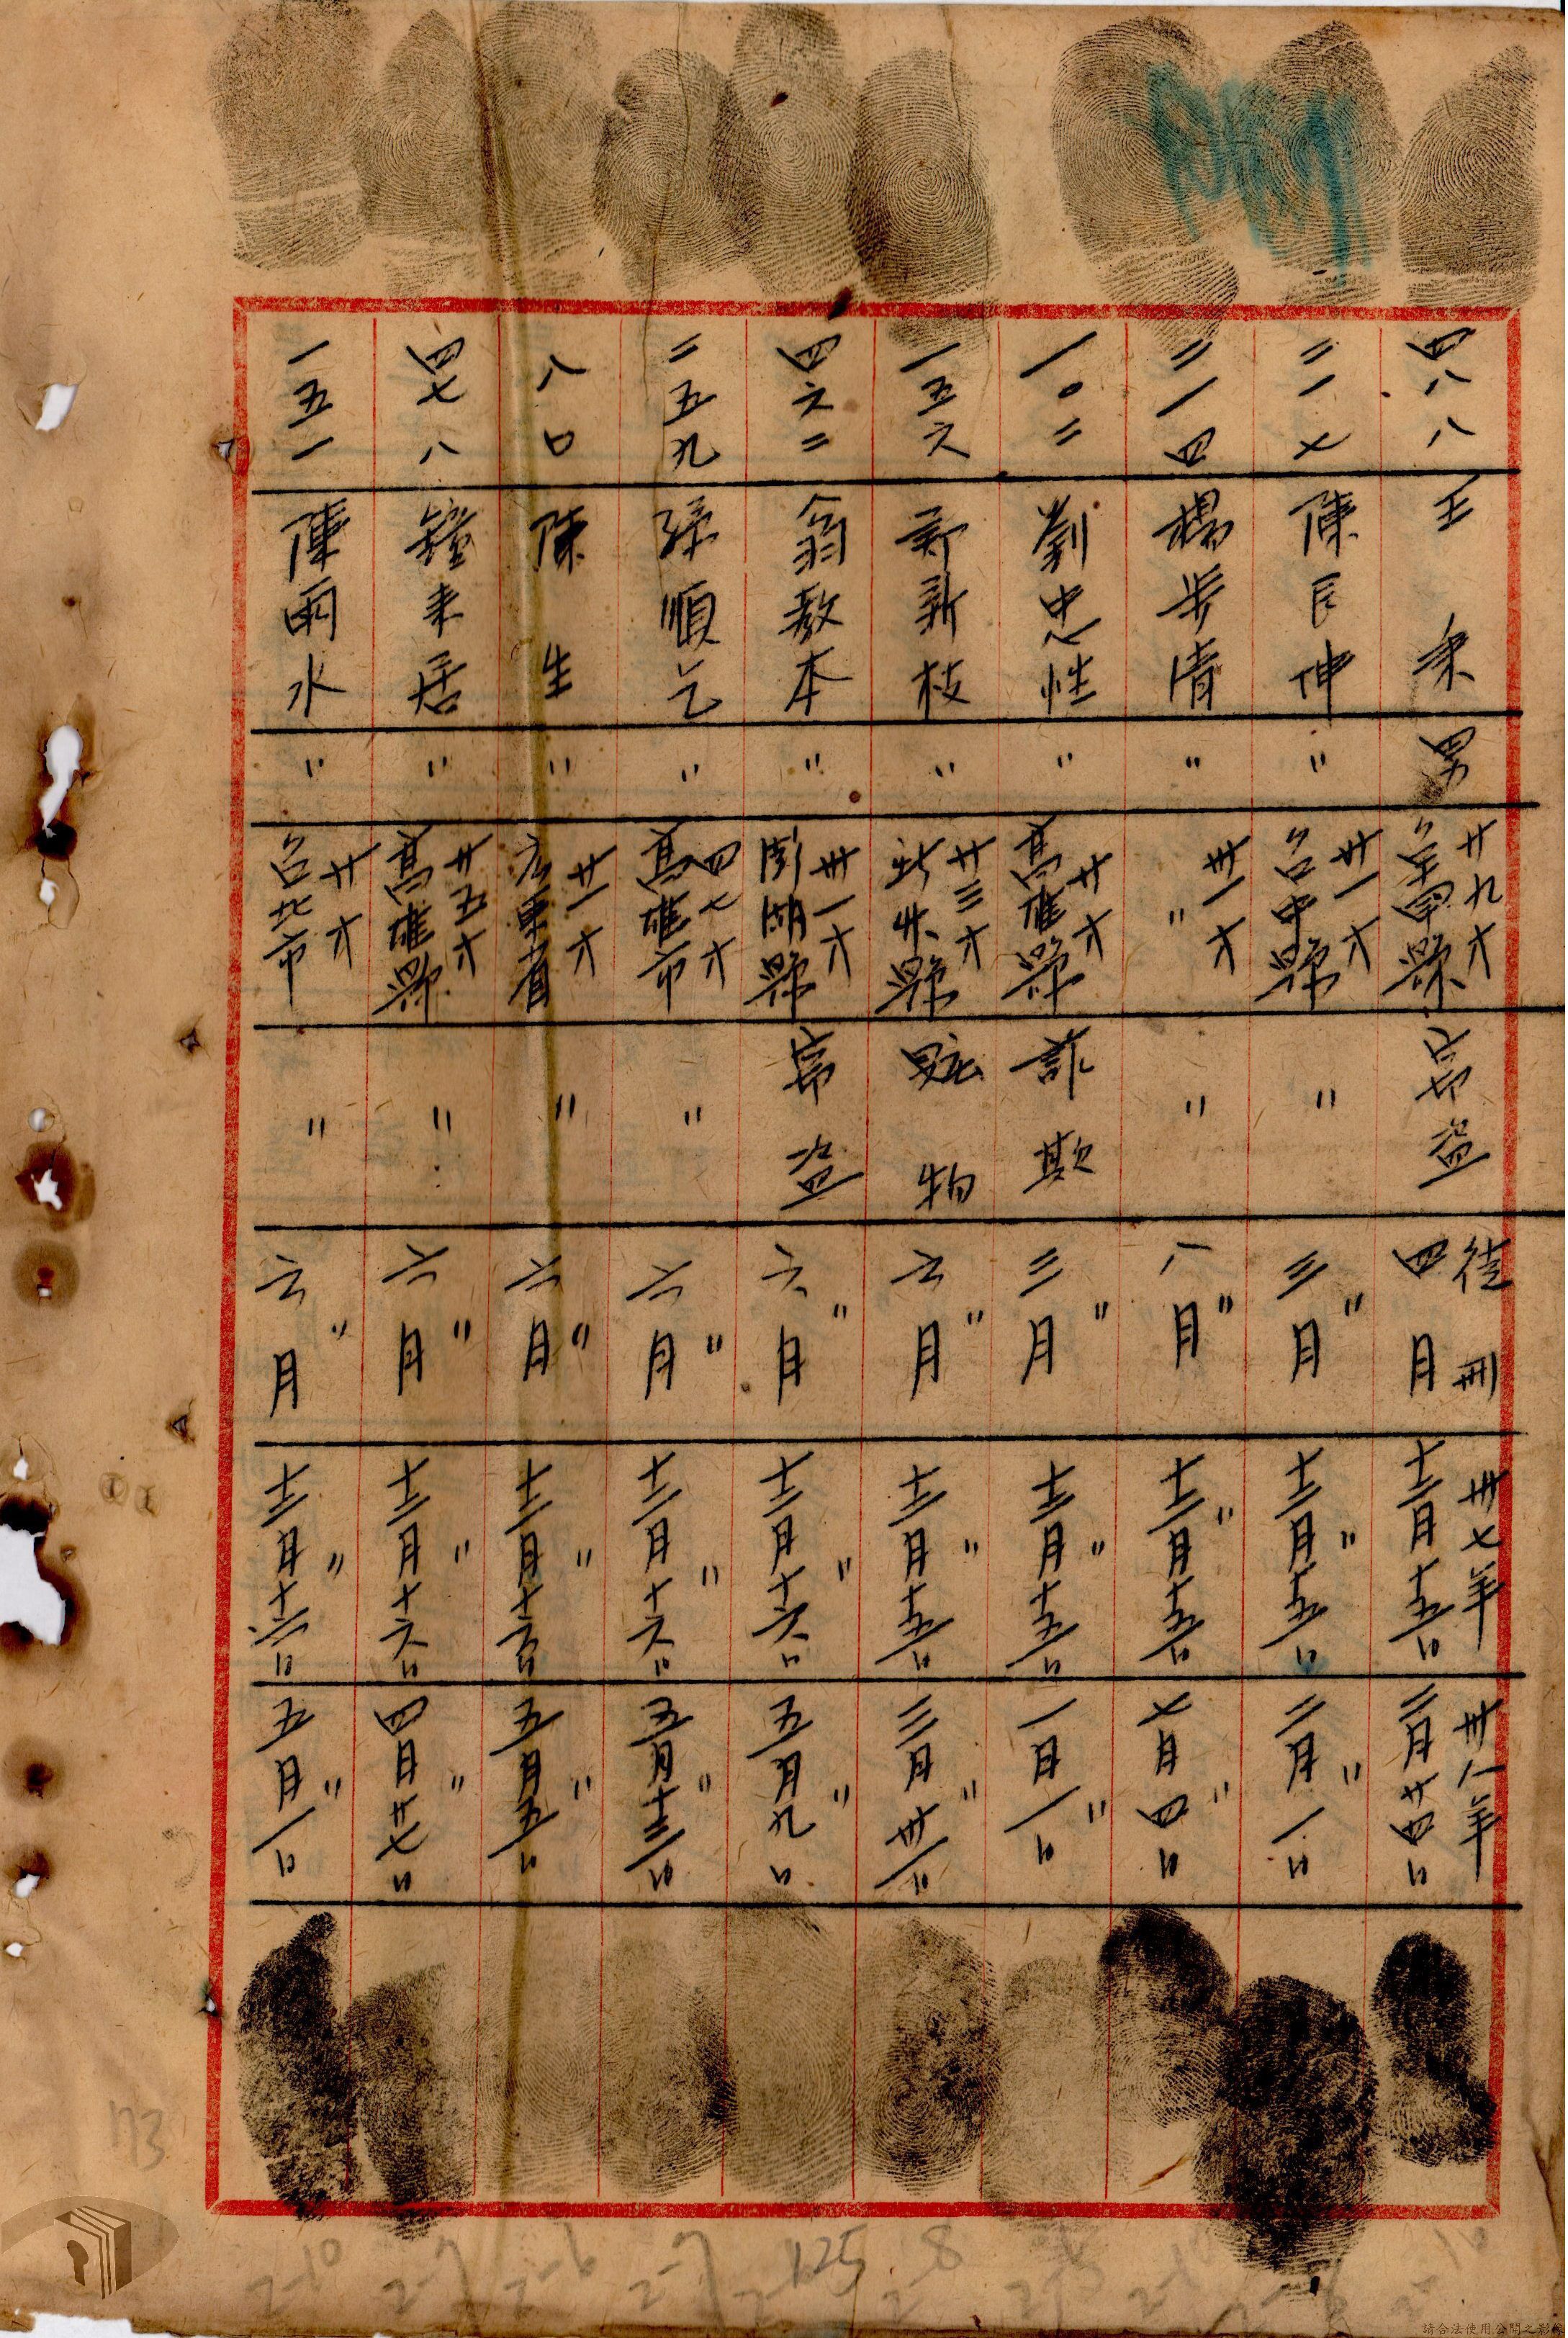 四八八 王秉 男 廿九才 台南縣 窃盜 徒刑 四月 卅七年 十二月十五日 卅八年 二月廿四日
二一七 陳良坤 〃 廿一才 台中縣 〃 〃 三月 〃 十二月十五日 〃 二月一日
二一四 楊步清 〃 卅一才 〃 〃 〃 八月 〃 十二月十五日 〃 七月四日
一〇二 劉忠性 〃 廿才 高雄縣 詐欺 〃 三月 〃 十二月十五日 〃 一月一日
一五六 新枝 〃 廿三才 新竹縣 贓物 〃 六月 〃 十二月十五日 〃 三月卅一日
四六二 翁教本 〃 卅一才 澎湖縣 窃盜 〃 六月 〃 十二月十六日 〃 五月九日
二五九 孫順乞 〃 四七才 高雄市 〃 〃 六月 〃 十二月十六日 〃 五月十三日
八〇 陳生 〃 廿一才 広東省 〃 〃 六月 〃 十二月十六日 〃 五月五日
四七八 鐘来居 〃 廿五才 高雄縣 〃 〃 六月 〃 十二月十六日 〃 四月廿七日
一五一 陳雨水 〃 廿才 台北市 〃 〃 六月 〃 十二月十六日 〃 五月一日
173
2-10 2-7 2-6 2-7 125 8
請合法使用公開之影像